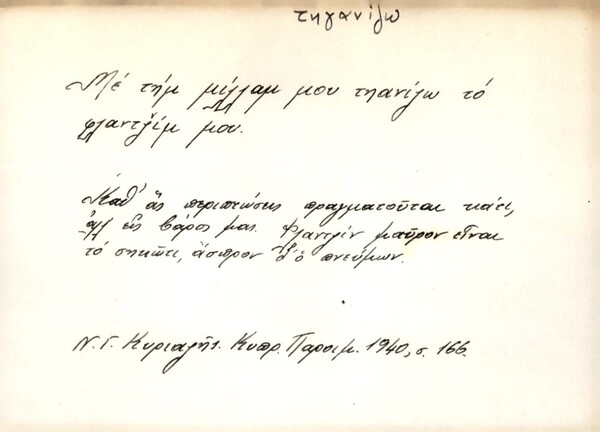 τηγανίζω
Μέ τήμ μίλλαμ μου τηανίζω τό
φλαντζίμ μου.
Καθ' ἅς περιπτώσεις πραγματοῦται κάτι,
εἰς βάρος μας. Φλαντζίν μαῦρον εἶναι
τό σηκῶτι, ἄσπρον δ' ὁ πνεύμων.
Ν. Γ. Κυριαζῆς. Κυπρ. Παροιμ. 1940, σ. 166.